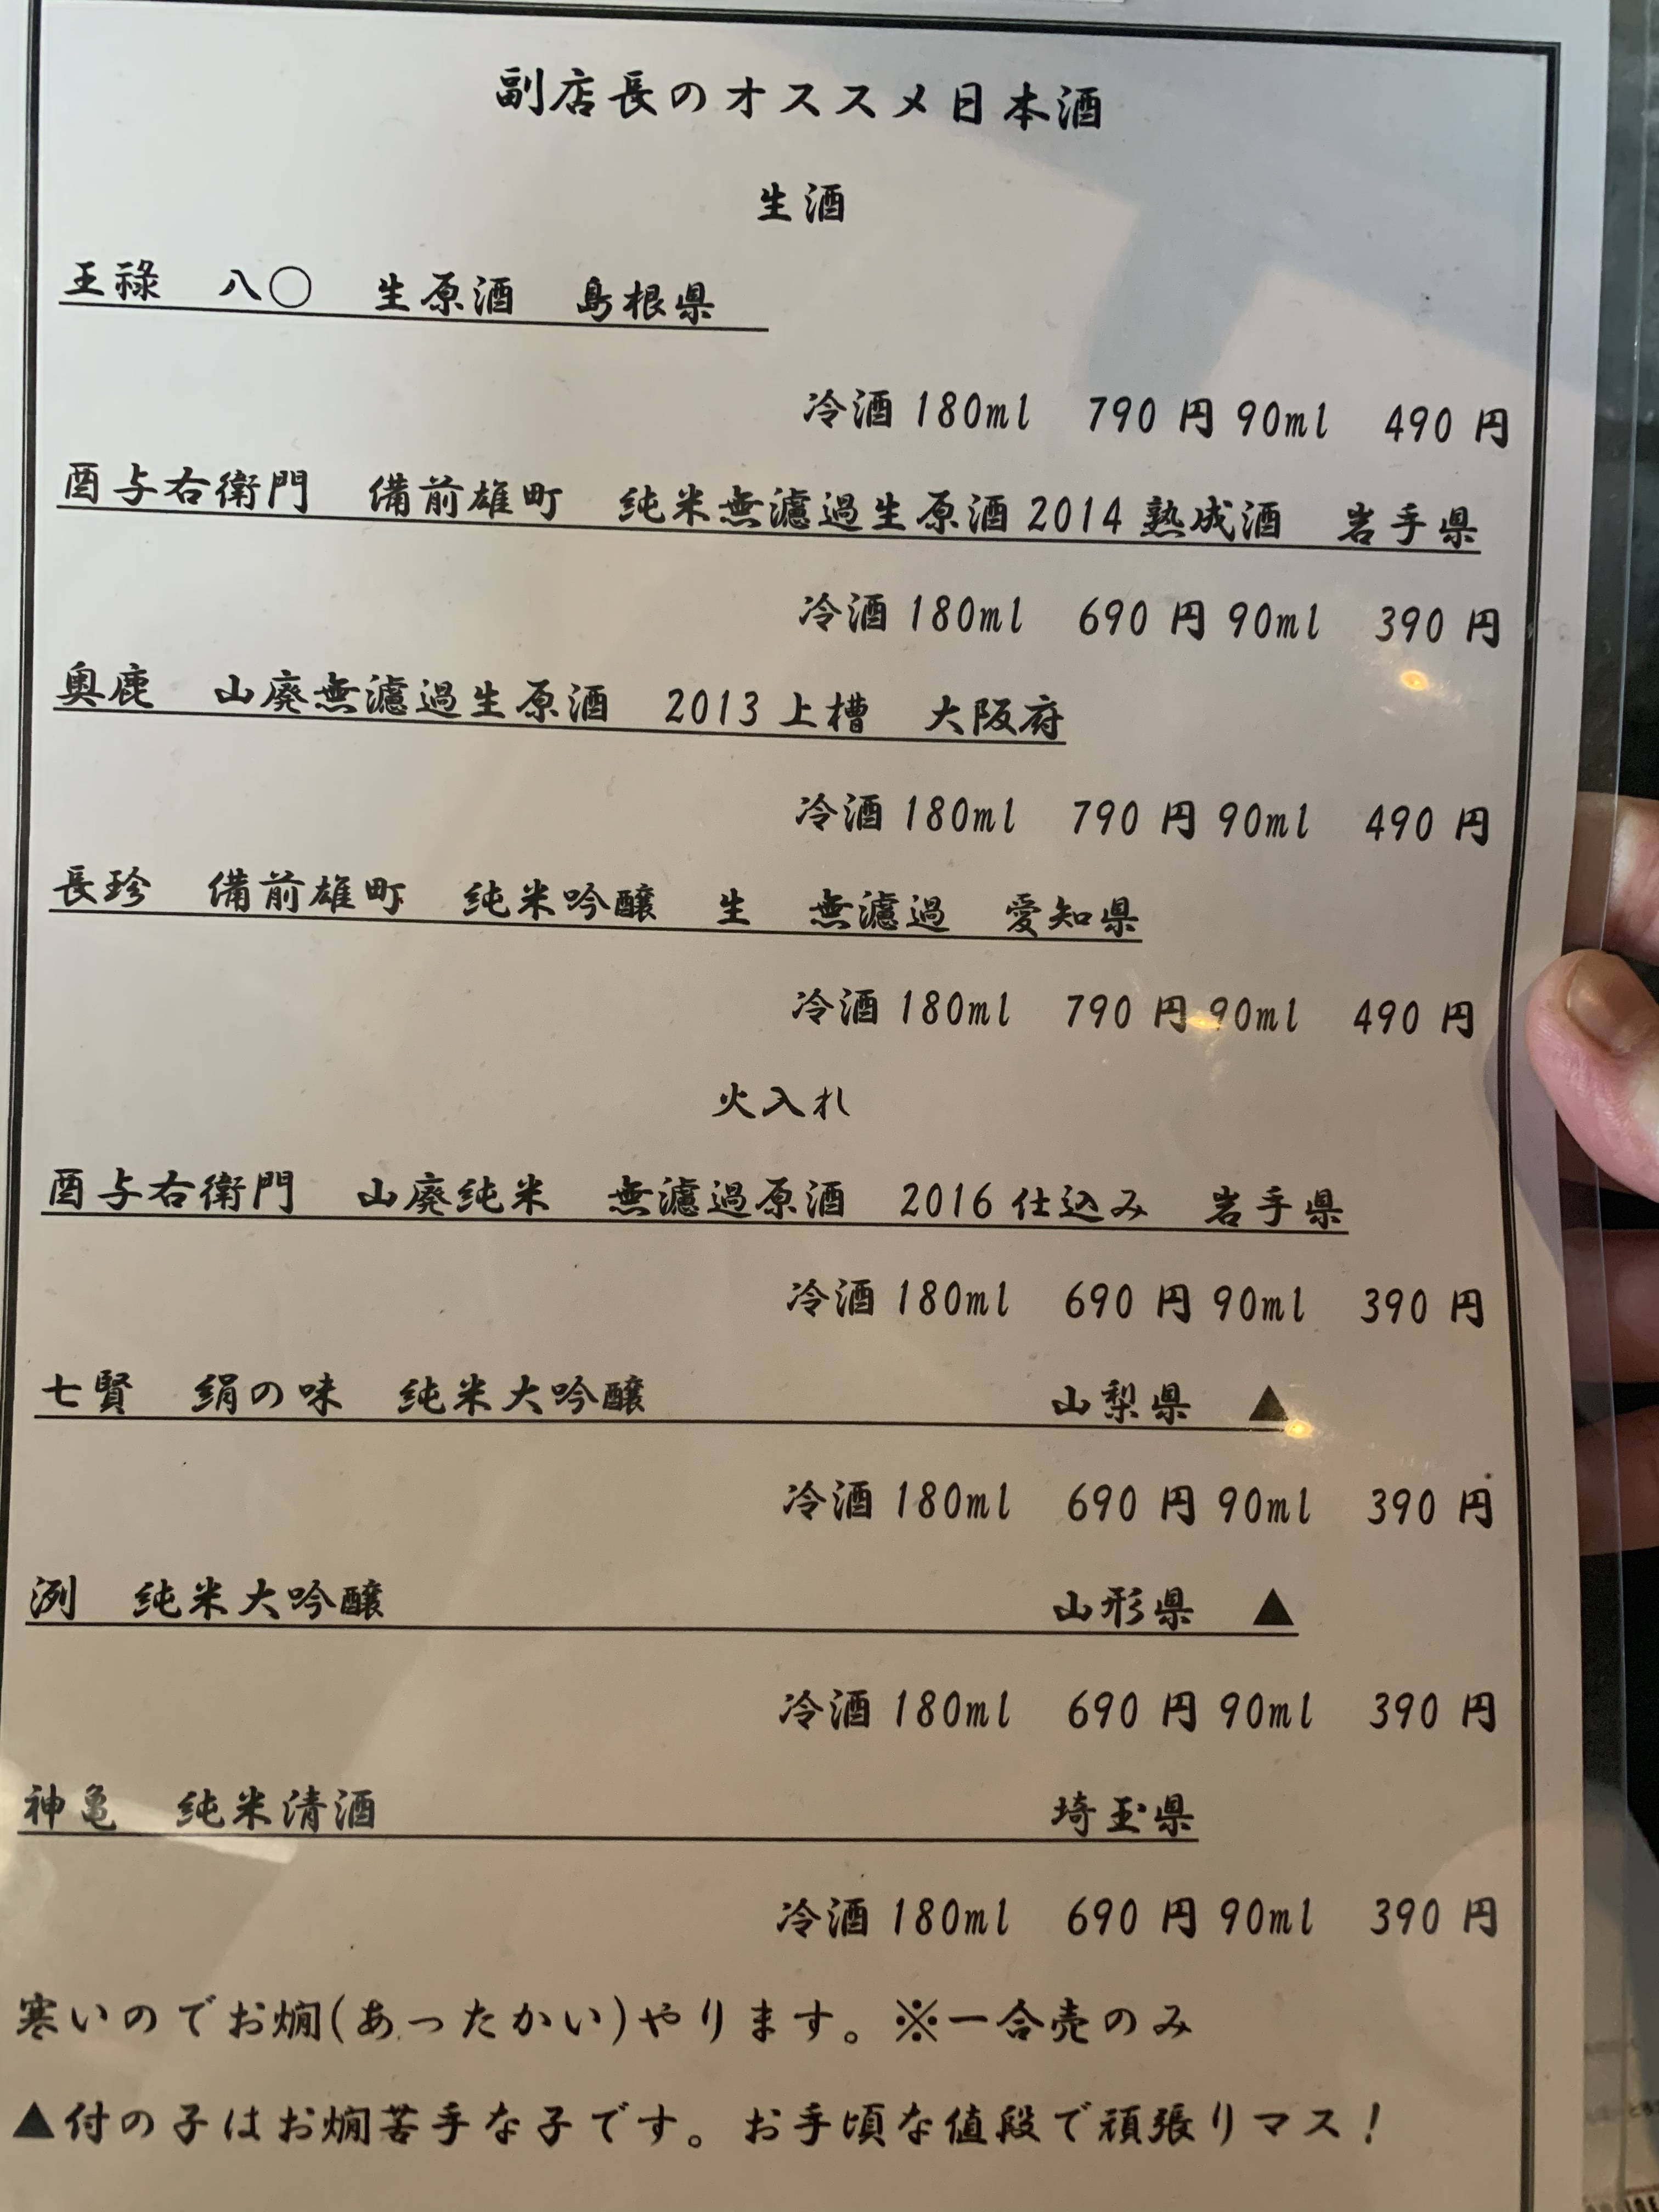 副店長のオススメ日本酒
生酒
王祿　八〇　生原酒　島根県
冷酒180ml　790円90ml　490円
酉与右衛門　備前雄町　純米無濾過生原酒2014熟成酒　岩手県
冷酒180ml　690円90ml　390円
奥鹿　山廃無濾過生原酒　2013上槽　大阪府
冷酒180ml　790円90ml　490円
長珍　備前雄町　純米吟醸　生　無濾過　愛知県
冷酒180ml　790円90ml　490円
火入れ
酉与右衛門　山廃純米　無濾過原酒　2016仕込み　岩手県
冷酒180ml　690円90ml　390円
七賢　絹の味　純米大吟醸　山梨県　▲
冷酒180ml　690円90ml　390円
洌　純米大吟醸　山形県　▲
冷酒180ml　690円90ml　390円
神亀　純米清酒　埼玉県
冷酒180ml　690円90ml　390円
寒いのでお燗(あったかい)やります。※一合売のみ
▲付の子はお燗苦手な子です。お手頃な値段で頑張りマス！